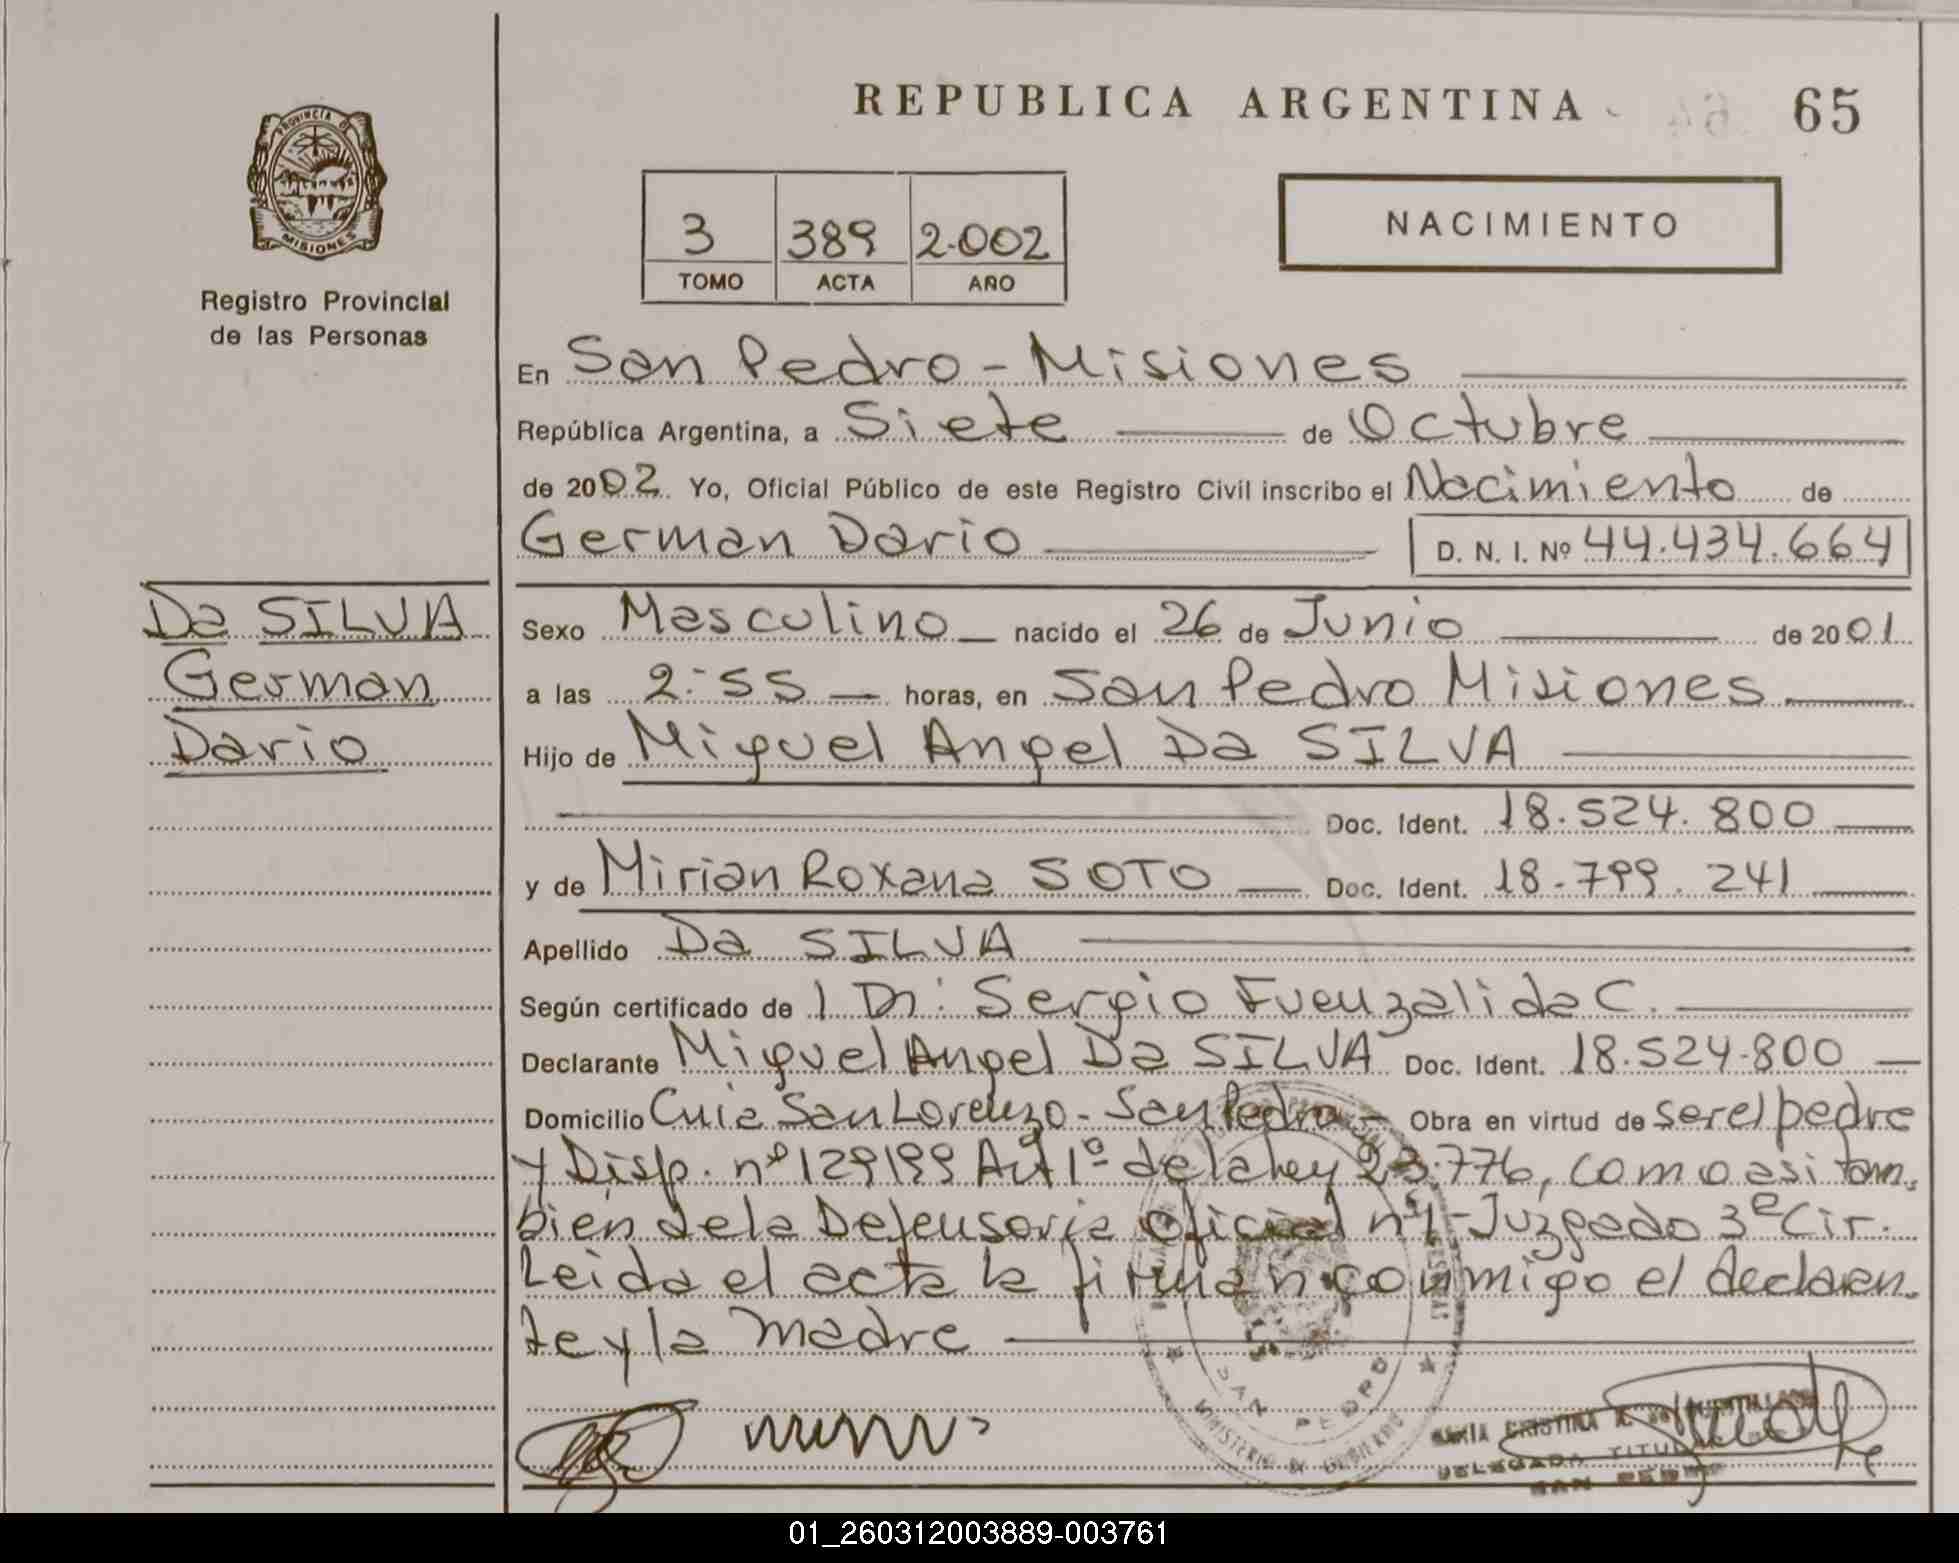 REPUBLICA ARGENTINA
65
PROVINCIA DE
MISIONES
Registro Provincial
de las Personas
3 389 2.002
TOMO ACTA AÑO
NACIMIENTO
En San Pedro - Misiones
República Argentina, a Siete de Octubre
de 2002. Yo, Oficial Público de este Registro Civil inscribo el Nacimiento de
German Dario D. N. I. Nº 44.434.664
Da SILVA
German
Dario
Sexo Masculino nacido el 26 de Junio de 2001
a las 2:55 horas, en San Pedro Misiones
Hijo de Miguel Angel Da SILVA
Doc. Ident. 18.524.800
y de Mirian Roxana SOTO Doc. Ident. 18.799.241
Apellido Da SILVA
Según certificado de 1 Dr: Sergio Fuenzalida C.
Declarante Miguel Angel Da SILVA Doc. Ident. 18.524.800
Domicilio Cuia San Lorenzo - San Pedro - Obra en virtud de ser el padre
y Disp. nº 129199 Art 1º de la ley 23.776, como asi tam-
bien de la Defensoria Oficial nº1 - Juzgado 3º Cir.
Leida el acta la firman conmigo el declaran-
te y la madre
SAN PEDRO
MINISTERIO DE GOBIERNO
MARIA CRISTINA
DELEGADA TITULAR
SAN PEDRO
01_260312003889-003761